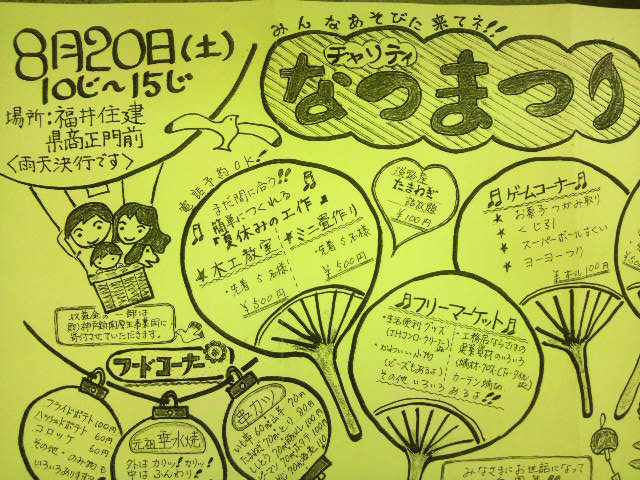 8月20日(土)
10じ～15じ
場所:福井住建
県商正門前
<雨天決行です>
みんなあそびに来てネ!!
チャリティ
なつまつり
電話予約OK!
まだ間に合う!!
簡単につくれる
『夏休みの工作』
★木工教室
・先着5名様
¥500円
★ミニ畳作り
・先着5名様
¥500円
淡路産
たまねぎ
詰放題
¥100円
♫ゲームコーナー♫
★ お菓子つかみ取り
★ くじ引
★ スーパーボールすくい
★ ヨーヨーつり
¥オール100円
♫フリーマーケット♫
・生活便利グッズ
・かわいい小物
(ビーズもあるよ)
工務店ならではの
カーテン端切
その他いろいろあるよ!!
収益金の一部は
寄付させていただきます。
フードコーナー
フライドポテト 100円
ハッシュドポテト 60円
コロッケ 60円
その他・のみ物も
いろいろありますヨ!
元祖 華水焼
外はカリッ!カリッ!
中はふんわり!
串カツ
みなさまにお世話になって